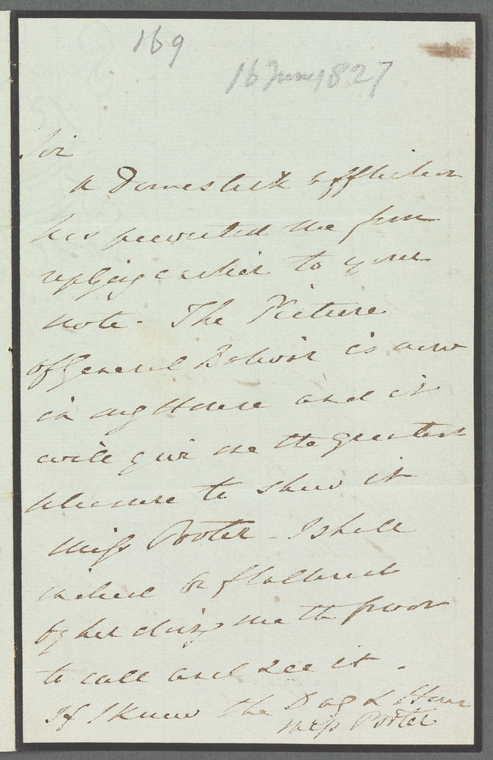 169
16 June 1827
Sir
A Domestick affliction
has prevented me from
replying earlier to your
note. The Picture
of General Bolivar is now
in my House and it
will give me the greatest
pleasure to shew it
Miss Porter - I shall
indeed be flattered
by her doing me the favor
to call and see it.
If I knew the Day & Hour
Miss Porter